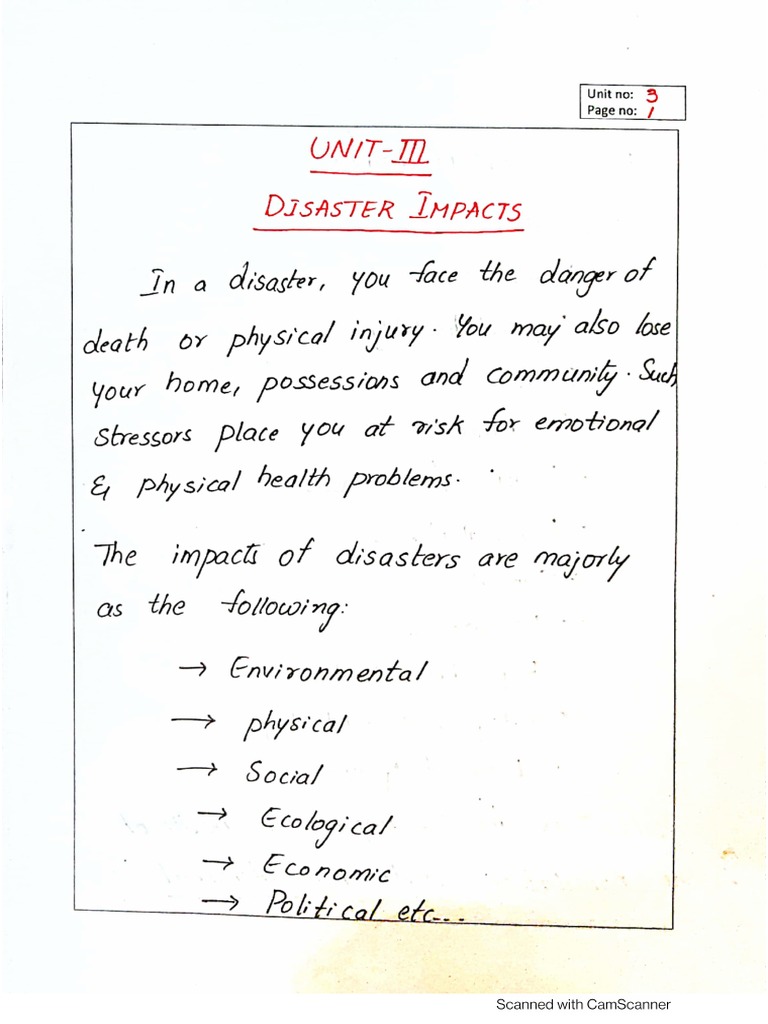 Unit no: 3
Page no: 1
UNIT-III
DISASTER IMPACTS
In a disaster, you face the danger of
death or physical injury. You may also lose
your home, possessions and community. Such
stressors place you at risk for emotional
& physical health problems.
The impacts of disasters are majorly
as the following:
→ Environmental
→ physical
→ Social
→ Ecological
→ Economic
→ Political etc...
Scanned with CamScanner